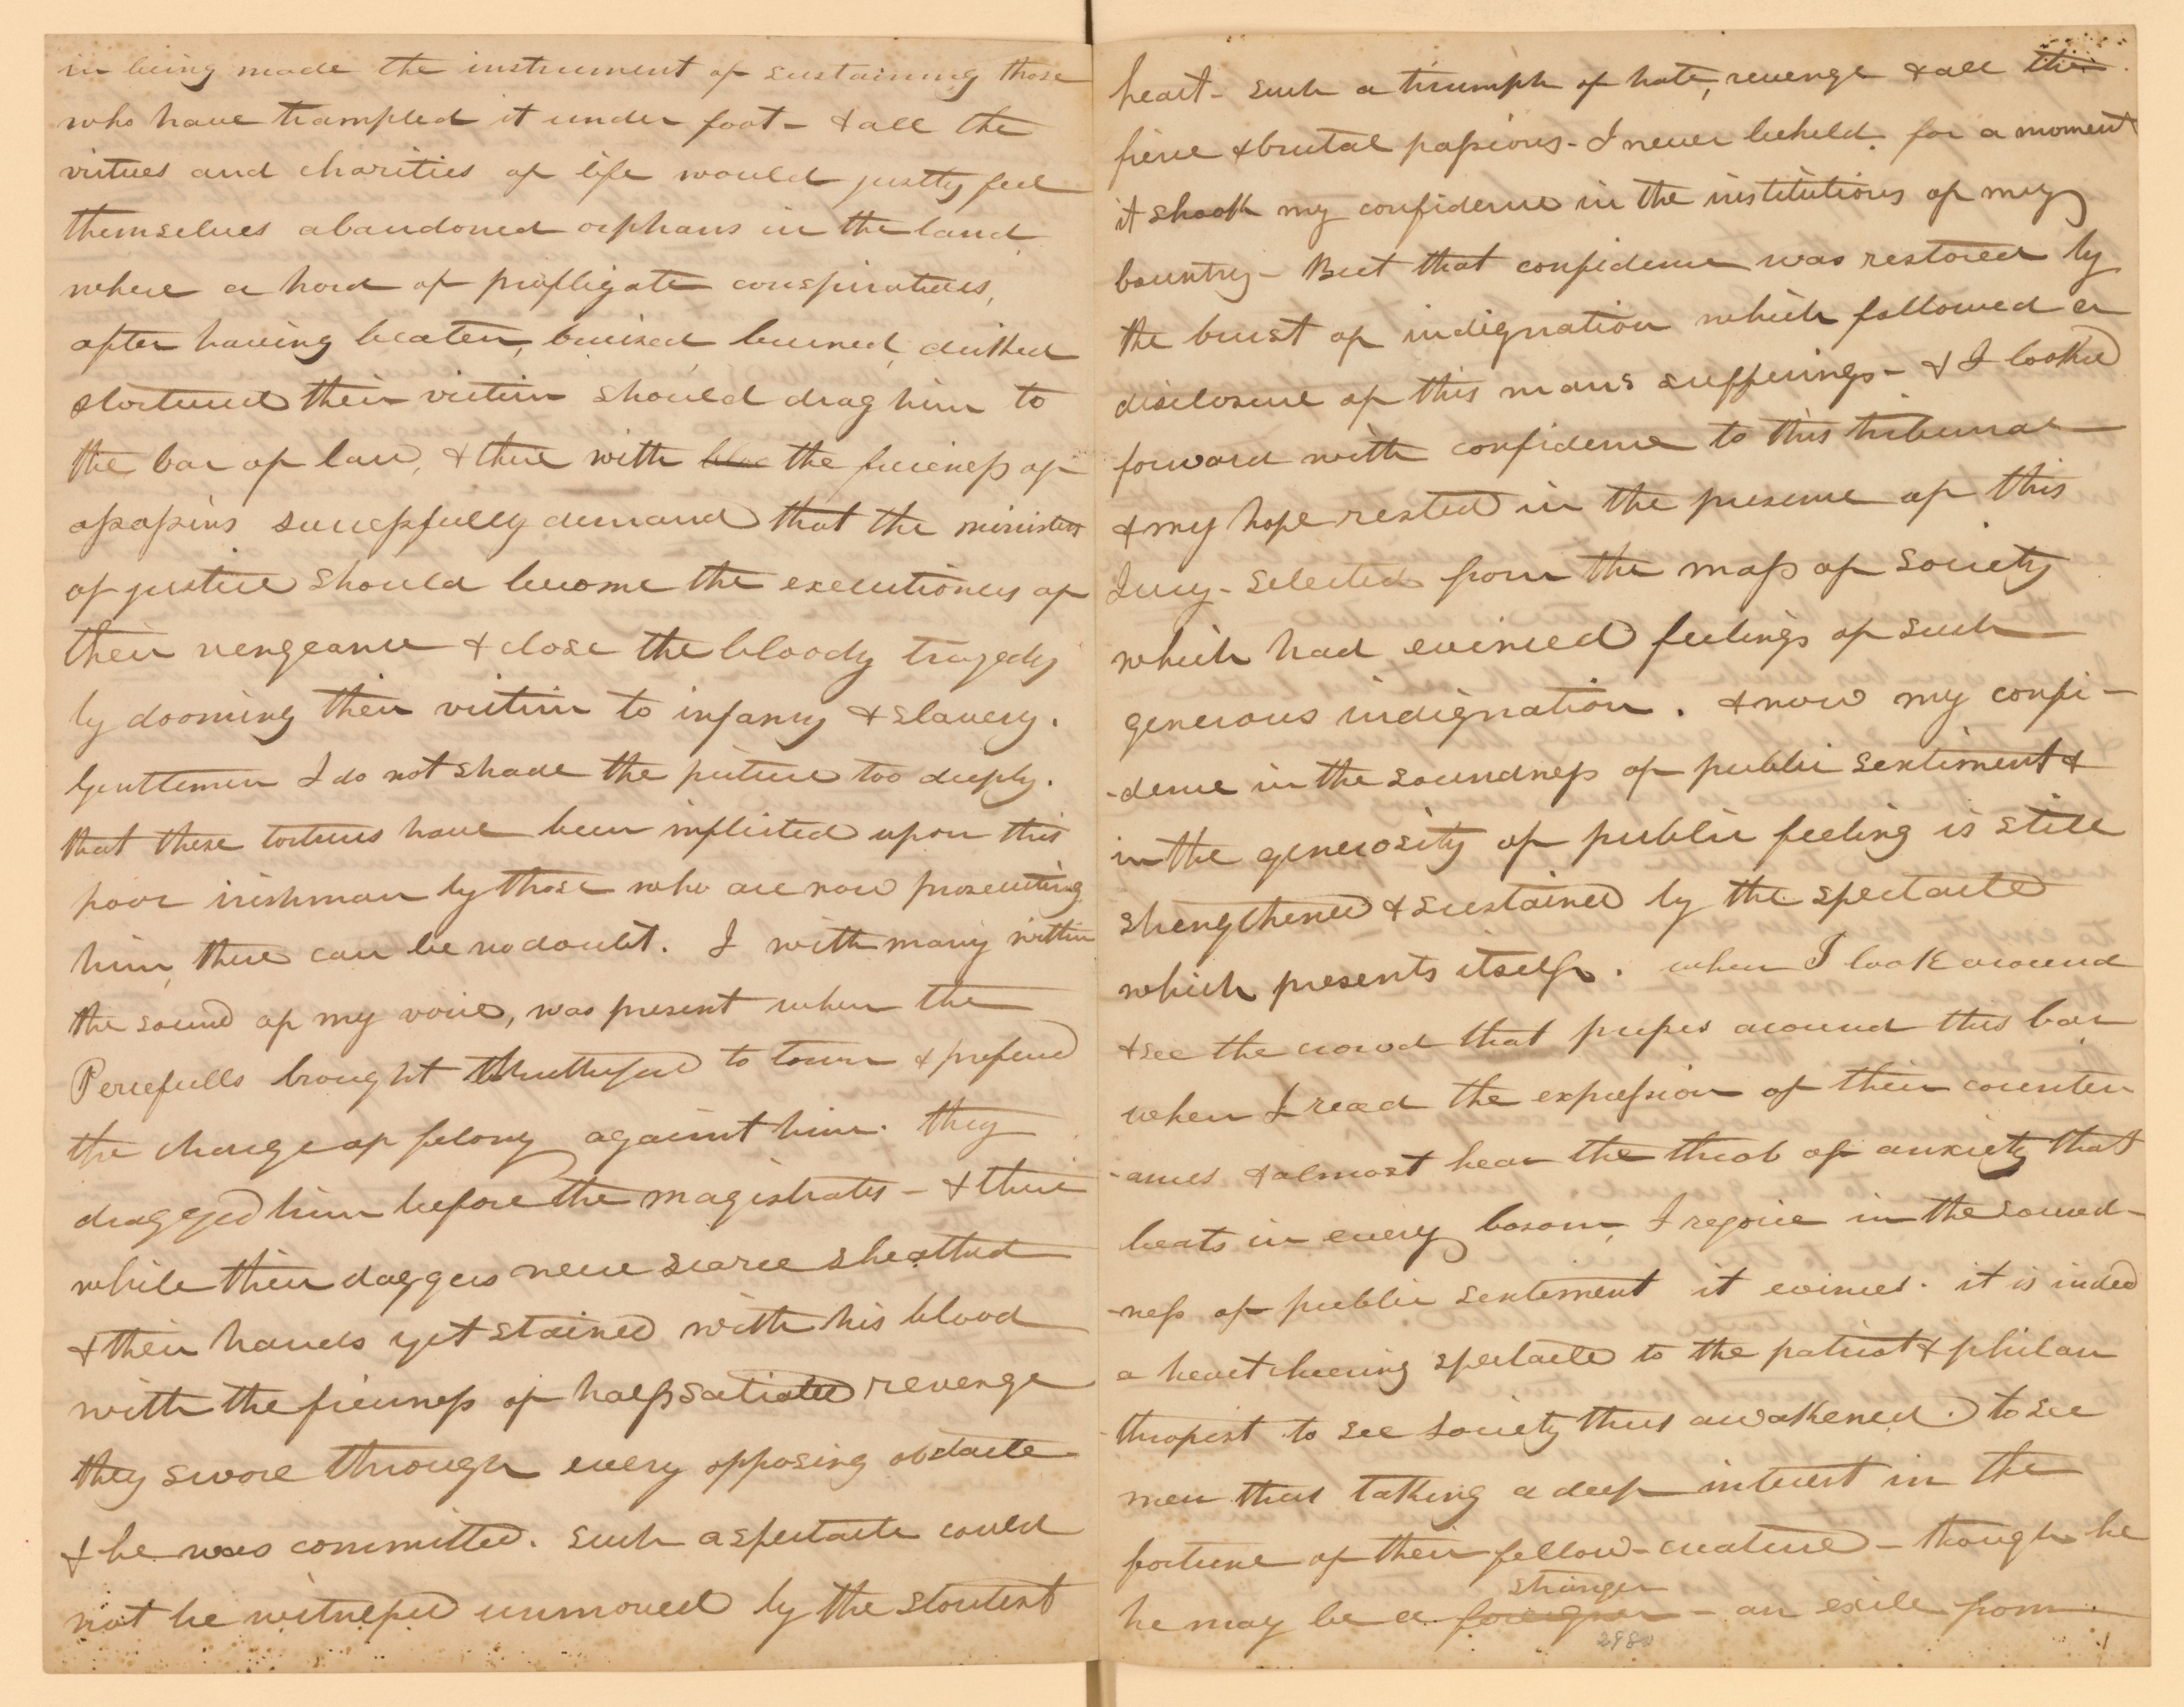 in being made the instrument of sustaining those
who have trampled it under foot - & all the
virtues and charities of life would justly feel
themselves abandoned orphans in the land
where a hord of profligate conspirators,
after having beaten, bruised burned,
& tortured their victim should drag him to
the bar of law, & there with the fierceness of
assassins successfully demand that the ministers
of justice should become the executioners of
their vengeance & close the bloody tragedy
by dooming their victim to infamy & slavery.
Gentlemen I do not shade the picture too deeply.
that these tortures have been inflicted upon this
poor irishman by those who are now prosecuting
him, there can be no doubt. I with many within
the sound of my voice, was present when the
Percefulls brought to town & prefered
the charge of felony against him. they
dragged him before the magistrates - & there
while their daggers were scarce sheathed
& their hands yet stained with his blood
with the fierceness of half satiated revenge
they swore through every opposing obstacle
& he was committed. Such a spectacle could
not be witnessed unmoved by the stoutest
heart - Such a triumph of hate, revenge & all the
fierce & brutal passions - I never beheld. for a moment
it shook my confidence in the institutions of my
Country - But that confidence was restored by
the burst of indignation which followed a
disclosure of this mans sufferings - & I looked
forward with confidence to this tribunal
& my hope rested in the presence of this
Jury - Selected from the mass of Society
which had evinced feelings of such
generous indignation. & now my confi-
-dence in the soundness of public sentiment &
in the generosity of public feeling is still
strengthened & sustained by the spectacle
which presents itself. when I look around
& see the crowd that presses around this bar
when I read the expression of their counten
-ances & almost hear the throb of anxiety that
beats in every bosom, I rejoice in the sound-
-ness of public sentiment it evinces. it is indeed
a heart cheering spectacle to the patriot & philan
thropist to see society thus awakened. to see
men thus taking a deep interest in the
fortune of their fellow-creature - though he
he may be a foreigner stranger - an exile from
2980